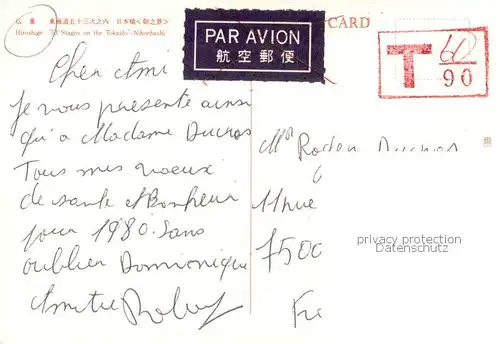 広重 東海道五十三次之内 日本橋〈朝之景〉
Hiroshige "53 Stages on the Tokaido"-Nihonbashi
CARD
PAR AVION
航空郵便
T 60
90
Cher Ami
je vous présente ainsi
qu'a Madame Ducros
Tous mes voeux
de sante et Bonheur
pour 1980. Sans
oublier Dominique
Amitié
Mr Roger Ducros
11 rue
7500
Fr
privacy protection
Datenschutz